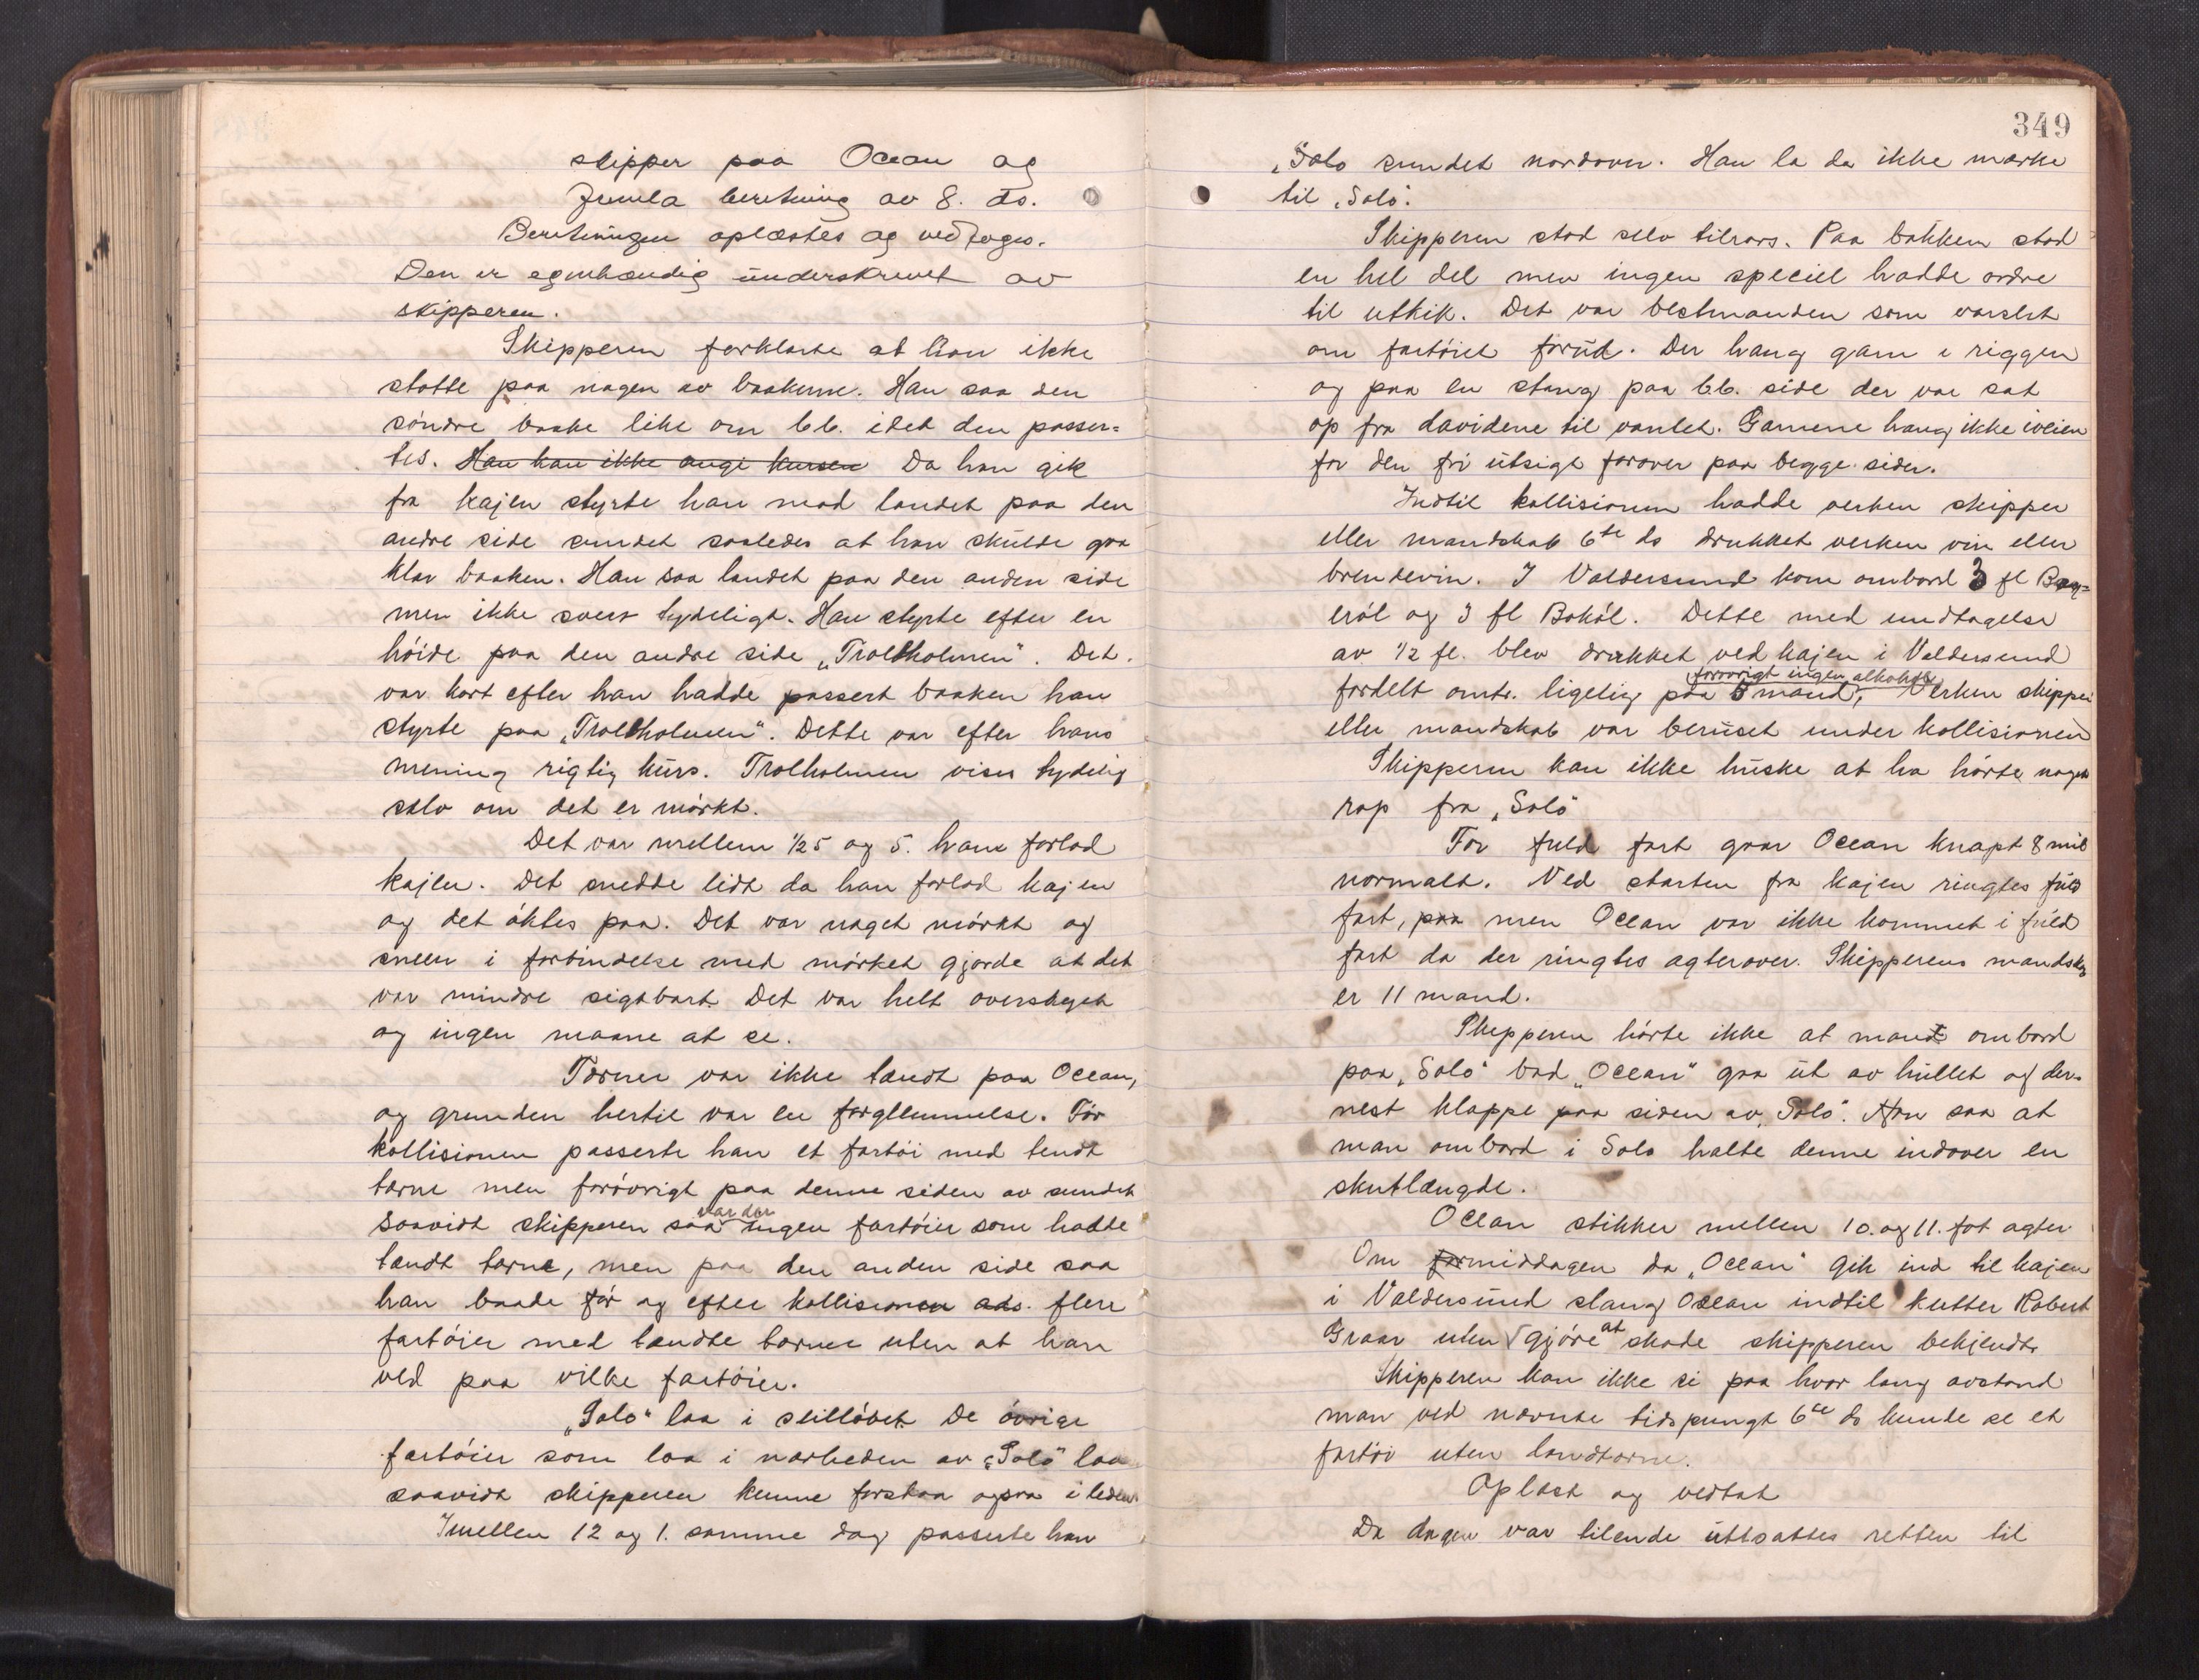 skipper paa Ocean og
beretning av 8. ds.
Beretningen oplæstes og vedtoges.
Den er egenhændig underskrevet av
skipperen.
Skipperen forklarte at han ikke
støtte paa nogen av baakerne. Han saa den
søndre baake like om bb. idet den passer=
tes. Han kan ikke angi kursen Da han gik
fra kajen styrte han mod landet paa den
andre side sundet saaledes at han skulde gaa
klar baaken. Han saa landet paa den anden side
men ikke svert tydeligt. Han styrte efter en
høide paa den andre side „Trollholmen“. Det
var kort efter han hadde passert baaken han
styrte paa „Trollholmen“. Dette var efter hans
mening rigtig kurs. Trolholmen vises tydelig
selv om det er mørkt.
Det var mellem ½5 og 5. han forlod
kajen. Det snedde lidt da han forlod kajen
og det øktes paa. Det var noget mørkt og
sneen i forbindelse med mørket gjorde at det
var mindre sigtbart. Det var helt overskyet
og ingen maane at se.
Tærner var ikke tændt paa Ocean,
og grunden hertil var en forglemmelse. Før
kollisionen passerte han et fartøi med tendt
tærne men forøvrigt paa denne siden av sundet
saavidt skipperen saa var der ingen fartøier som hadde
tændt tærne, men paa den anden side saa
han baade før og efter kollisionen ads. flere
fartøier med tændte tærner uten at han
ved paa vilke fartøier.
„Solo“ laa i skilløbet. De øvrige
fartøier som laa i nærheden av „Solo“ laa
saavidt skipperen kunne forstaa ogsaa i leden
Imellem 12 og 1. samme dag passerte han
349
„Solo sundet nordover. Han la da ikke mærke
til „Solo“.
Skipperen stod selv tilrors. Paa bakken stod
en hel del men ingen speciel hadde ordre
til utkik. Det var bestmanden som varslet
om fartøiet forud. Der hang garn i riggen
og paa en stang paa bb. side der var sat
op fra davidene til vantet. Garnene hang ikke iveien
for den fri utsigt forover paa begge sider.
Indtil kollisionen hadde verken skipper
eller mandskab 6te ds drukket verken vin eller
brendevin. I Valdersund kom ombord 3 fl Bay=
erøl og 3 fl Bokøl. Dette med undtagelse
av 1/2 fl. blev drukket ved kajen i Valdersund
fordelt omtr. ligelig paa 5 mand, forøvrigt ingen alkohol. Verken skipper
eller mandskab var beruset under kollisionen
Skipperen kan ikke huske at ha hørte noget
rop fra „Solo“
For fuld fart gaar Ocean knapt 8 mil
normalt. Ved starten fra kajen ringtes fuld
fart, paa men Ocean var ikke kommet i fuld
fart da der ringtes agterover. Skipperens mandskab
er 11 mand.
Skipperen hørte ikke at mand ombord
paa „Solo“ bad „Ocean“ gaa ut av hullet og der=
nest klappe paa siden av „Solo“. Han saa at
man ombord i Solo halte denne indover en
skutlængde.
Ocean stikker mellem 10. og 11. fot agter
Om formiddagen da „Ocean“ gik ind til kajen
i Valdersund slang Ocean indtil kutter Robert
uten at gjøre skade skipperen bekjendt.
Skipperen kan ikke si paa hvor lang avstand
man ved nævnte tidspungt 6te ds kunde se et
fartøi uten
Oplæst og vedtat
Da dagen var tilende utsattes retten til